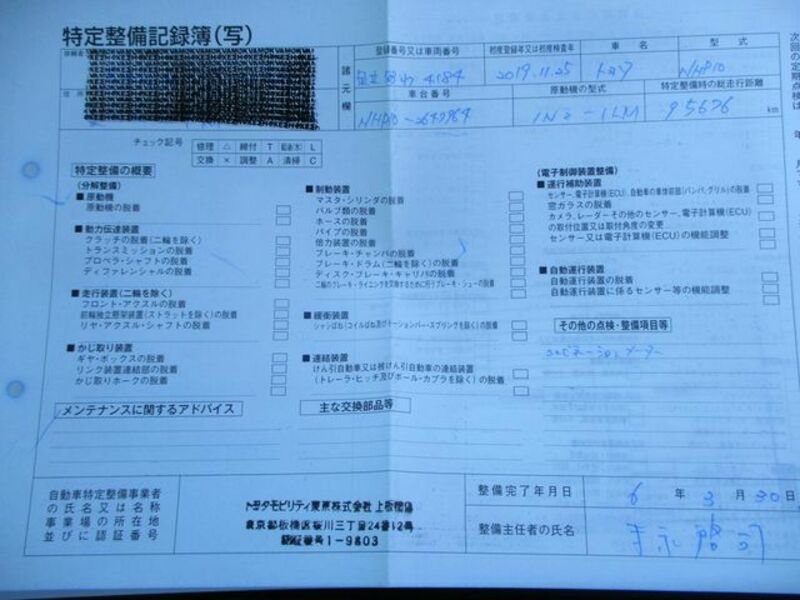 特定整備記録簿(写)
諸元欄
登録番号又は車両番号
初度登録年又は初度検査年
車名
型式
4184
2019.11.25
トヨタ
NHP10
車台番号
原動機の型式
特定整備時の総走行距離
1NZ-1LM
95676 km
チェック記号
修理 △ 締付 T 給油(水) L
交換 × 調整 A 清掃 C
特定整備の概要
(分解整備)
■原動機
原動機の脱着
■動力伝達装置
クラッチの脱着(二輪を除く)
トランスミッションの脱着
プロペラ・シャフトの脱着
ディファレンシャルの脱着
■走行装置(二輪を除く)
フロント・アクスルの脱着
前輪独立懸架装置(ストラットを除く)の脱着
リヤ・アクスル・シャフトの脱着
■かじ取り装置
ギヤ・ボックスの脱着
リンク装置連結部の脱着
かじ取りホークの脱着
■制動装置
マスタ・シリンダの脱着
バルブ類の脱着
ホースの脱着
パイプの脱着
倍力装置の脱着
ブレーキ・チャンバの脱着
ブレーキ・ドラム(二輪を除く)の脱着
ディスク・ブレーキ・キャリパの脱着
二輪のブレーキ・ライニングを交換するために行うブレーキ・シューの脱着
■緩衝装置
シャシばね(コイルばね及びトーションバー・スプリングを除く)の脱着
■連結装置
けん引自動車又は被けん引自動車の連結装置
(トレーラ・ヒッチ及びボール・カプラを除く)の脱着
(電子制御装置整備)
■運行補助装置
センサー、電子計算機(ECU)、自動車の車体前部(バンパ、グリル)の脱着
窓ガラスの脱着
カメラ、レーダーその他のセンサー、電子計算機(ECU)
の取付位置又は取付角度の変更
センサー又は電子計算機(ECU)の機能調整
■自動運行装置
自動運行装置の脱着
自動運行装置に係るセンサー等の機能調整
その他の点検・整備項目等
コンビネーションメーター
メンテナンスに関するアドバイス
主な交換部品等
自動車特定整備事業者
の氏名又は名称
事業場の所在地
並びに認証番号
トヨタモビリティ東京株式会社 上板橋店
東京都板橋区桜川三丁目24番12号
認証番号1-9803
整備完了年月日
6年3月30日
整備主任者の氏名